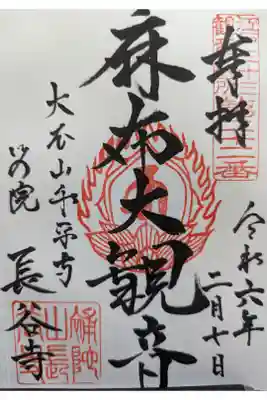 奉拝
令和六年
二月十日
麻布大觀音
大本山永平寺
別院
長谷寺
補陀
山長